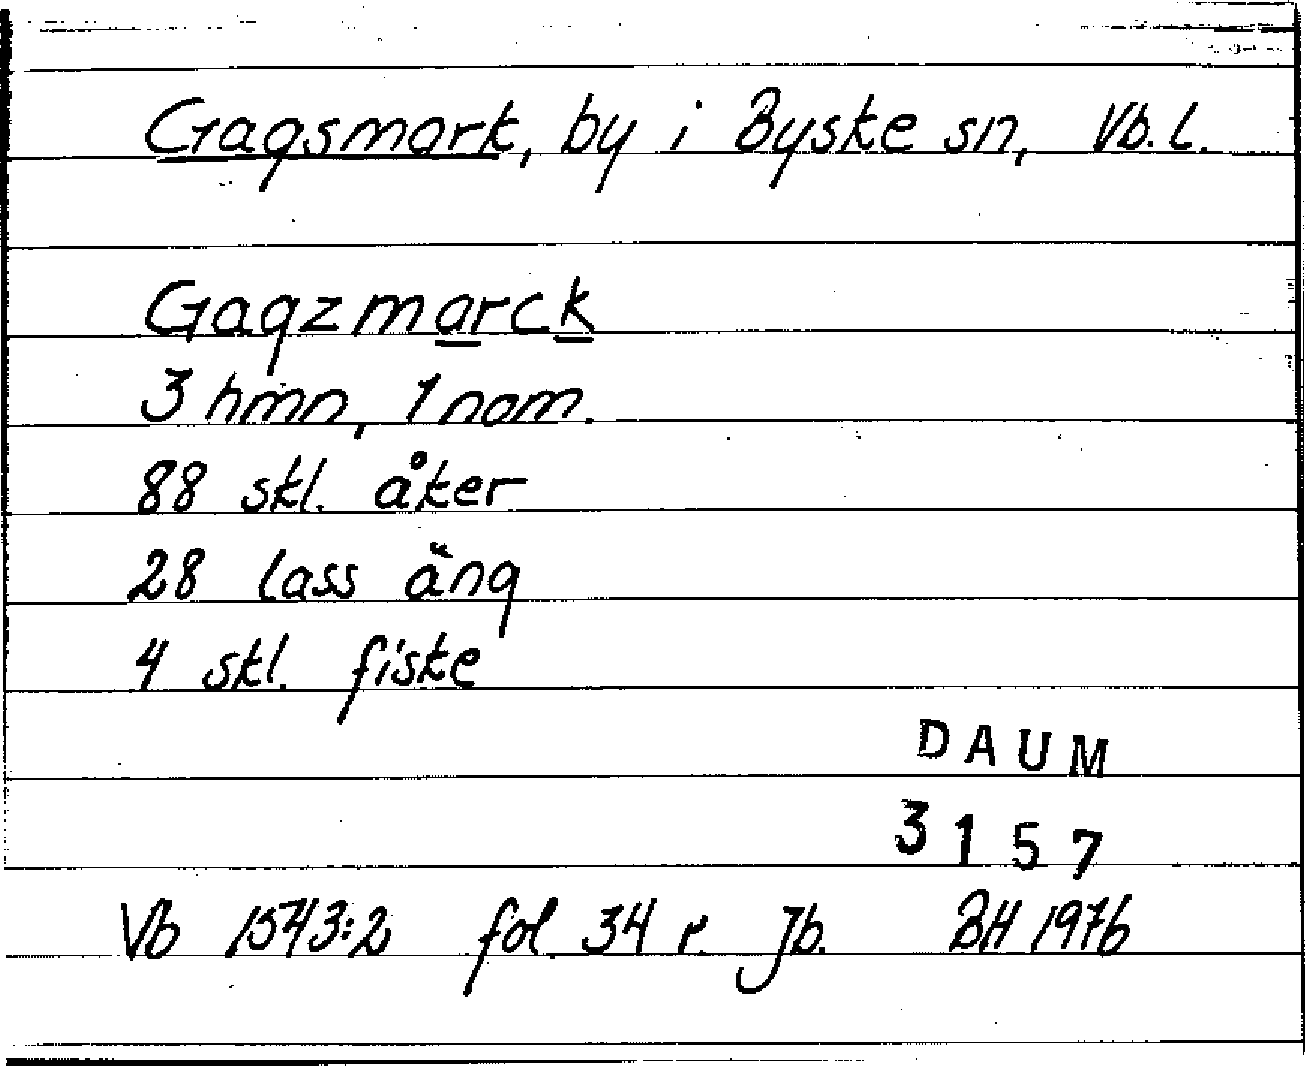 Gagsmark, by i Byske sn, Vb. l.
Gagzmarck
3 hmn, 1 nam.
88 skl. åker
28 lass äng
4 skl. fiske
DAUM
3157
Vb 1543:2 fol. 34 r. Jb. BH 1976